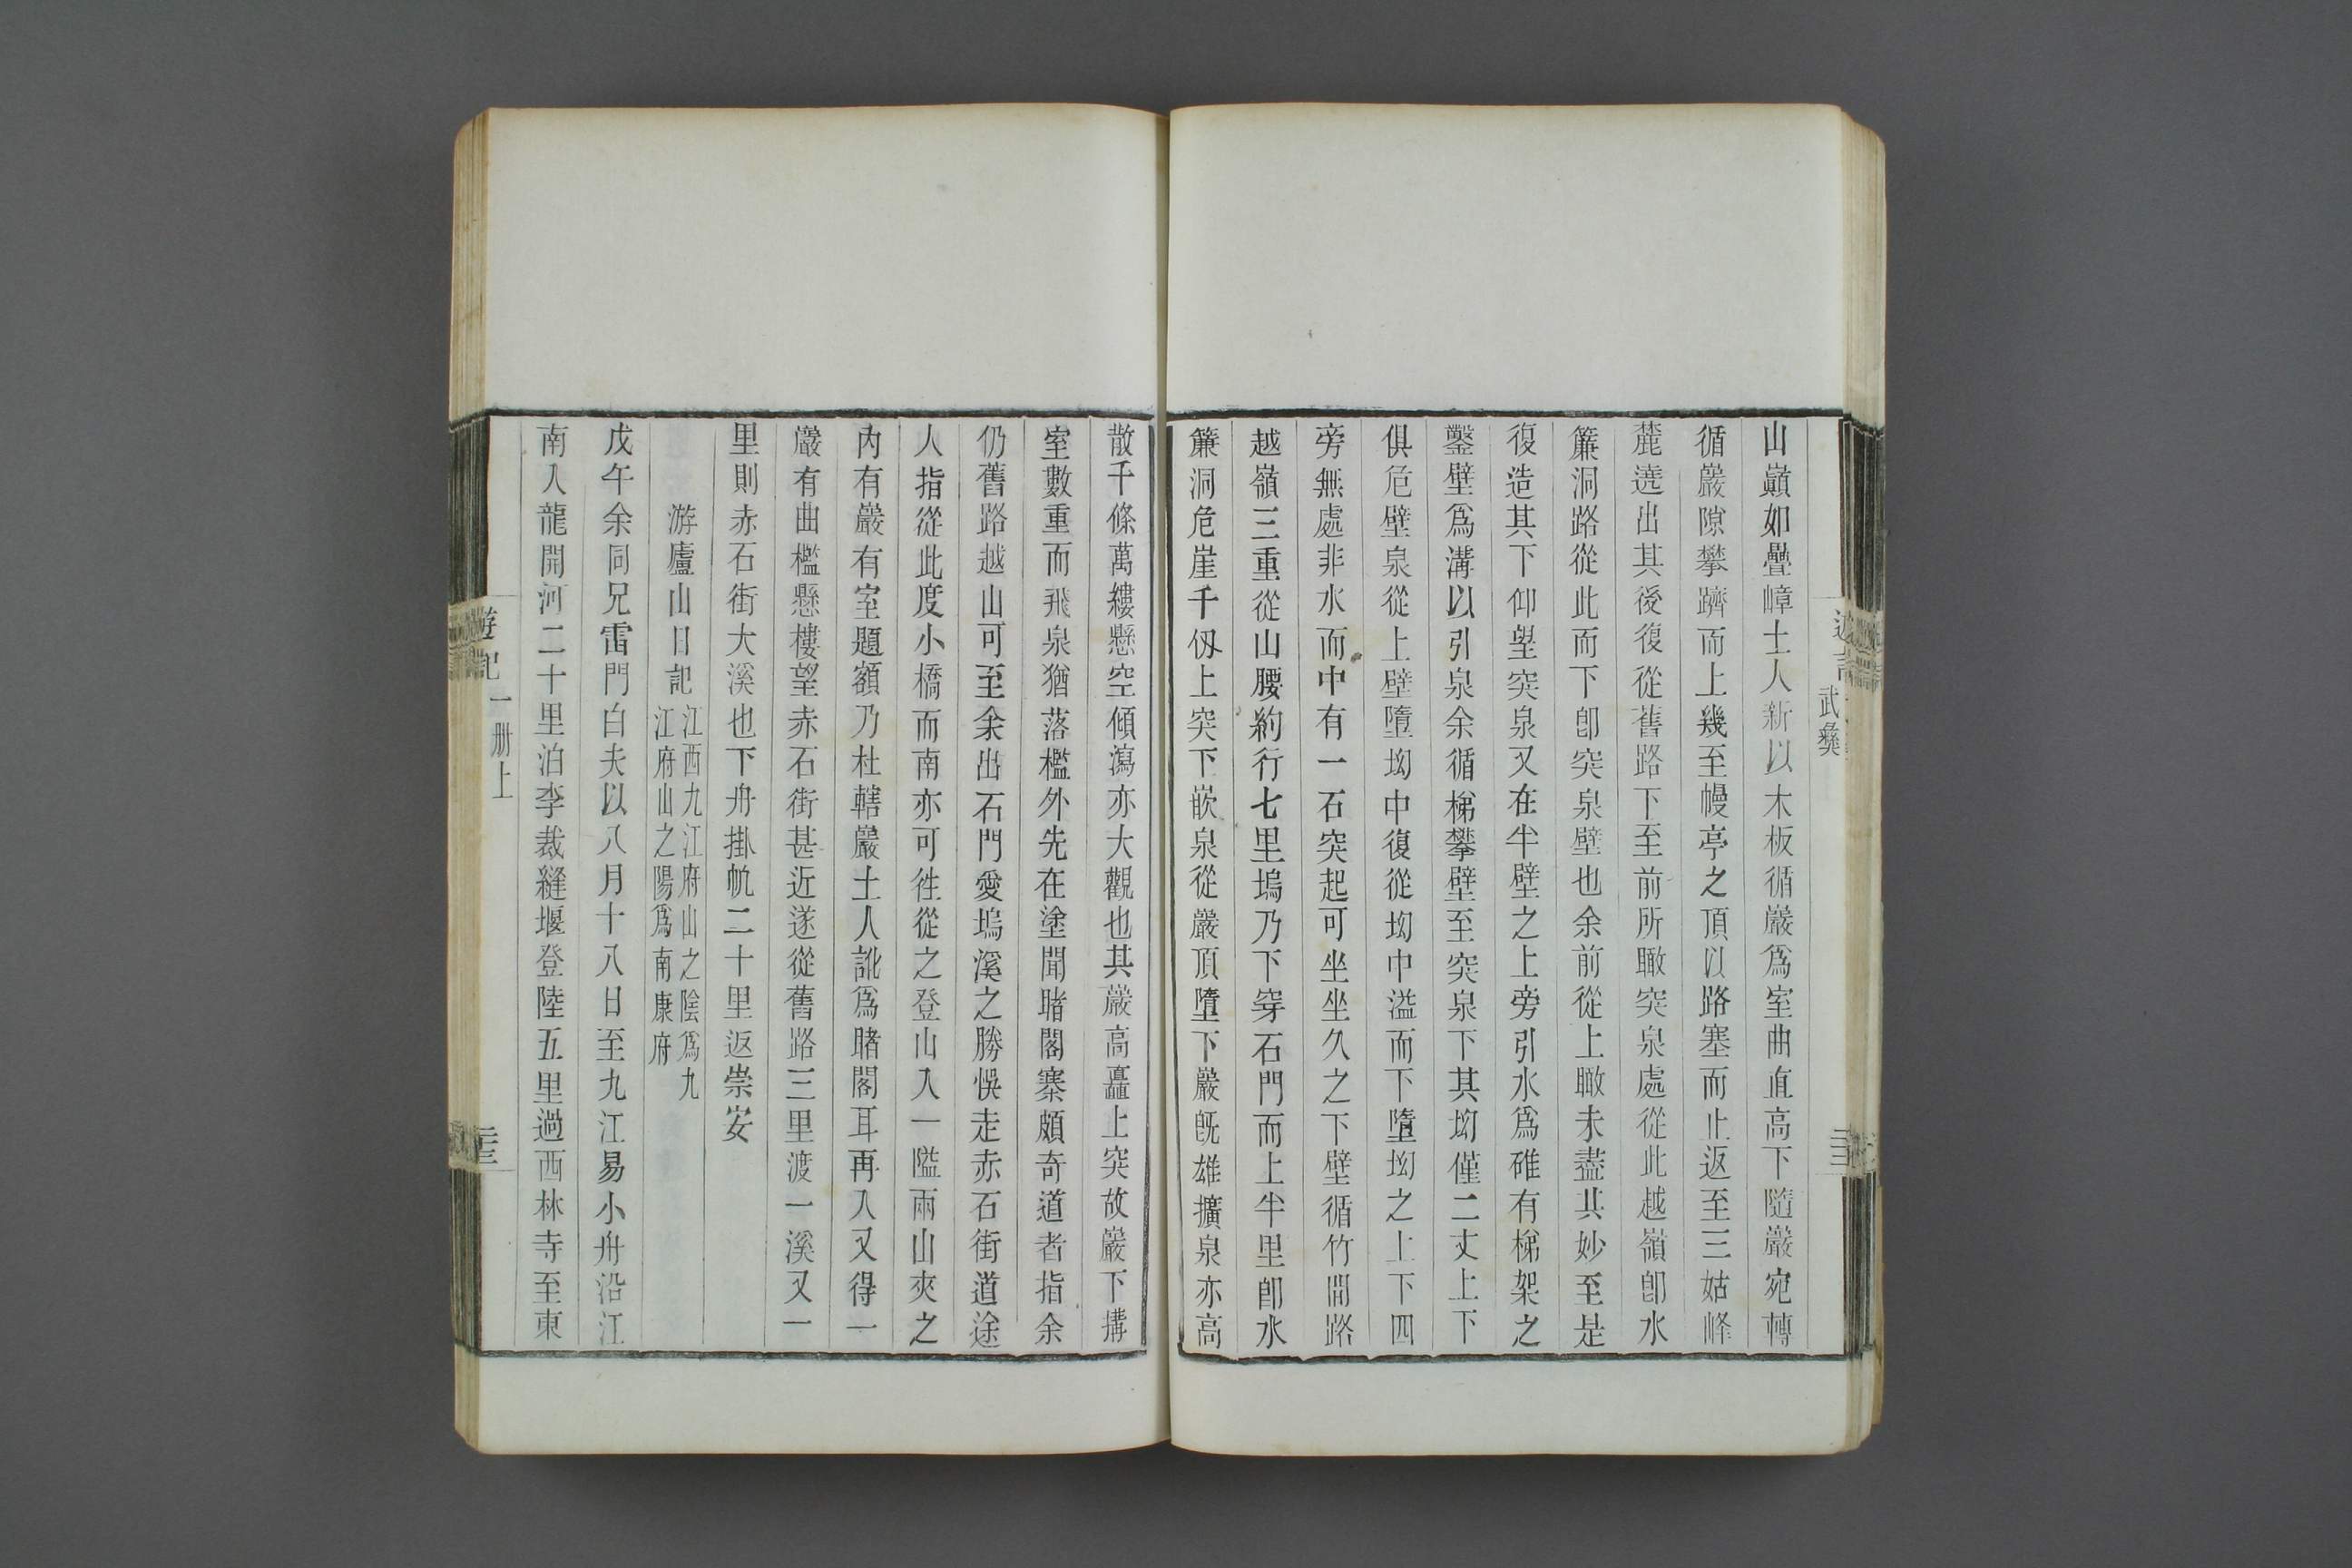 山巔如疊嶂土人新以木板循巖爲室曲直高下隨巖宛轉
循巖隙攀躋而上幾至幔亭之頂以路塞而止返至三姑峰
麓遶出其後復從舊路下至前所瞰突泉處從此越嶺卽水
簾洞路從此而下卽突泉壁也余前從上瞰未盡其妙至是
復造其下仰望突泉又在半壁之上旁引水爲碓有梯架之
鑿壁爲溝以引泉余循梯攀壁至突泉下其坳僅二丈上下
俱危壁泉從上壁墮坳中復從坳中溢而下墮坳之上下四
旁無處非水而中有一石突起可坐坐久之下壁循竹間路
越嶺三重從山腰約行七里塢乃下穿石門而上半里卽水
簾洞危崖千仭上突下嵌泉從巖頂墮下巖旣雄擴泉亦高
散千條萬縷懸空傾瀉亦大觀也其巖高矗上突故巖下搆
室數重而飛泉猶落檻外先在塗聞睹閣寨頗奇道者指余
仍舊路越山可至余出石門愛塢溪之勝悞走赤石街道途
人指從此度小橋而南亦可徃從之登山入一隘兩山夾之
內有巖有室題額乃杜轄巖土人訛爲睹閣耳再入又得一
巖有曲檻懸樓望赤石街甚近遂從舊路三里渡一溪又一
里則赤石街大溪也下舟掛帆二十里返崇安
游廬山日記
江西九江府山之陰爲九
江府山之陽爲南康府
戊午余同兄雷門白夫以八月十八日至九江易小舟沿江
南入龍開河二十里泊李裁縫堰登陸五里過西林寺至東
武彝
遊記
一册上